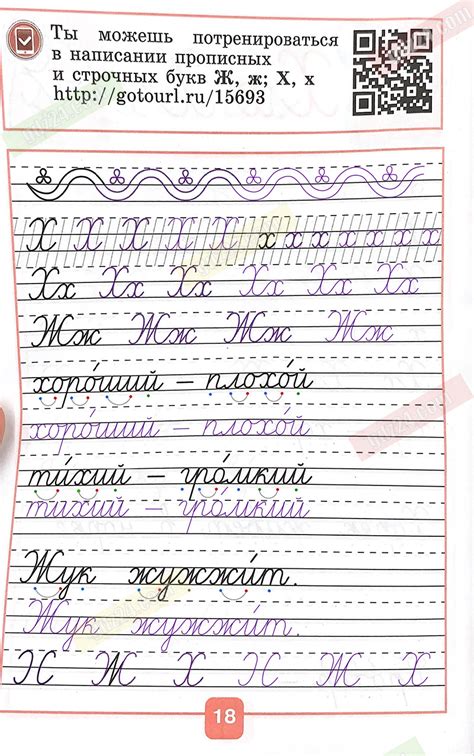 Ты можешь потренироваться
в написании прописных
и строчных букв Ж, ж; Х, х
http://gotourl.ru/15693
Х Х Х Х Х х х х х х х х
Хх Хх Хх Хх Хх Хх
Жж Жж Жж Жж
хоро́ший – плохо́й
хоро́ший – плохо́й
ти́хий – гро́мкий
ти́хий – гро́мкий
Жук жужжи́т.
Жук жужжи́т.
Н Ж Х Н Ж Х
18